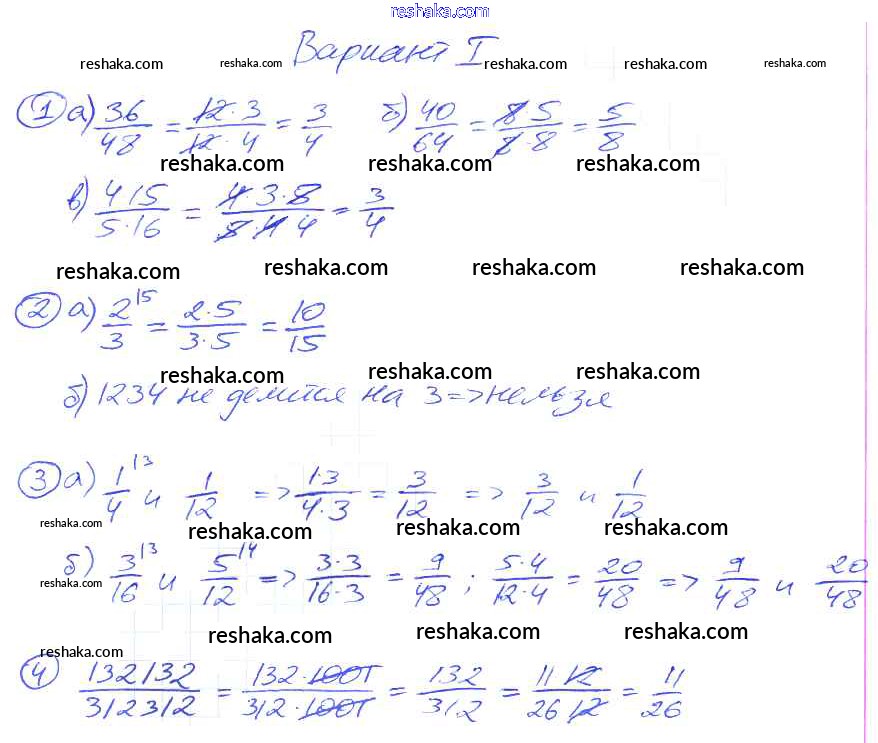 reshaka.com
Вариант I
reshaka.com reshaka.com reshaka.com reshaka.com reshaka.com
① а) 36/48 = 12·3/12·4 = 3/4 б) 40/64 = 8 5/8·8 = 5/8
reshaka.com reshaka.com reshaka.com
в) 4 15/5·16 = 4·3·8/8·4 4 = 3/4
reshaka.com reshaka.com reshaka.com reshaka.com
② а) 2/3 |5 = 2·5/3·5 = 10/15
reshaka.com reshaka.com reshaka.com
б) 1234 не делится на 3 => нельзя
③ а) 1/4 |3 и 1/12 => 1·3/4·3 = 3/12 => 3/12 и 1/12
reshaka.com reshaka.com reshaka.com reshaka.com
б) 3/16 |3 и 5/12 |4 => 3·3/16·3 = 9/48 ; 5·4/12·4 = 20/48 => 9/48 и 20/48
reshaka.com
reshaka.com reshaka.com reshaka.com reshaka.com
④ 132132/312312 = 132·1001/312·1001 = 132/312 = 11 12/26 12 = 11/26